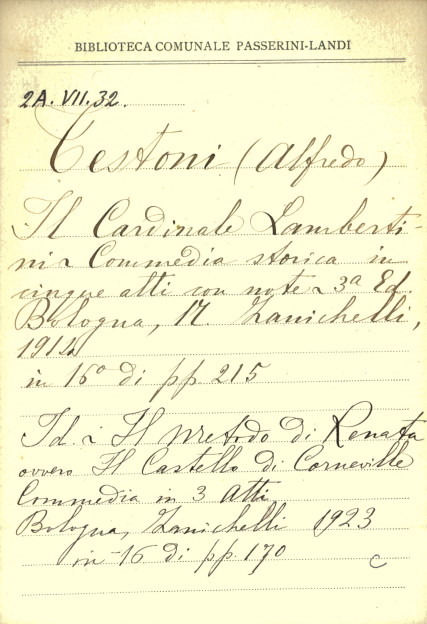 BIBLIOTECA COMUNALE PASSERINI-LANDI
2A. VII. 32.
Testoni (Alfredo)
Il Cardinale Lamberti-
ni ~ Commedia storica in
cinque atti con note ~ 3ª Ed.
Bologna, N. Zanichelli,
1914
in 16º di pp. 215
Id ~ Il Metodo di Renata
ovvero Il Castello di Corneville
Commedia in 3 Atti
Bologna, Zanichelli 1923
in -16 di pp. 170
C